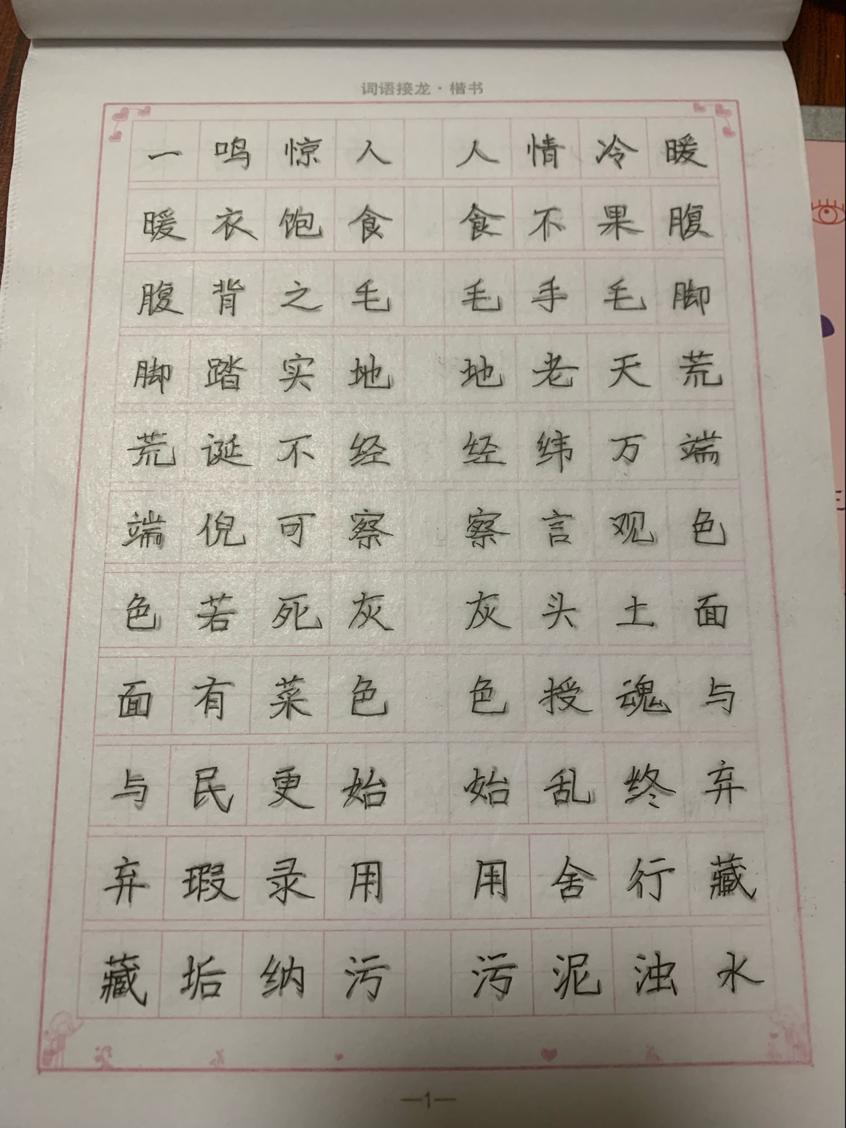 词语接龙·楷书
一鸣惊人 人情冷暖
暖衣饱食 食不果腹
腹背之毛 毛手毛脚
脚踏实地 地老天荒
荒诞不经 经纬万端
端倪可察 察言观色
色若死灰 灰头土面
面有菜色 色授魂与
与民更始 始乱终弃
弃瑕录用 用舍行藏
藏垢纳污 污泥浊水
—1—